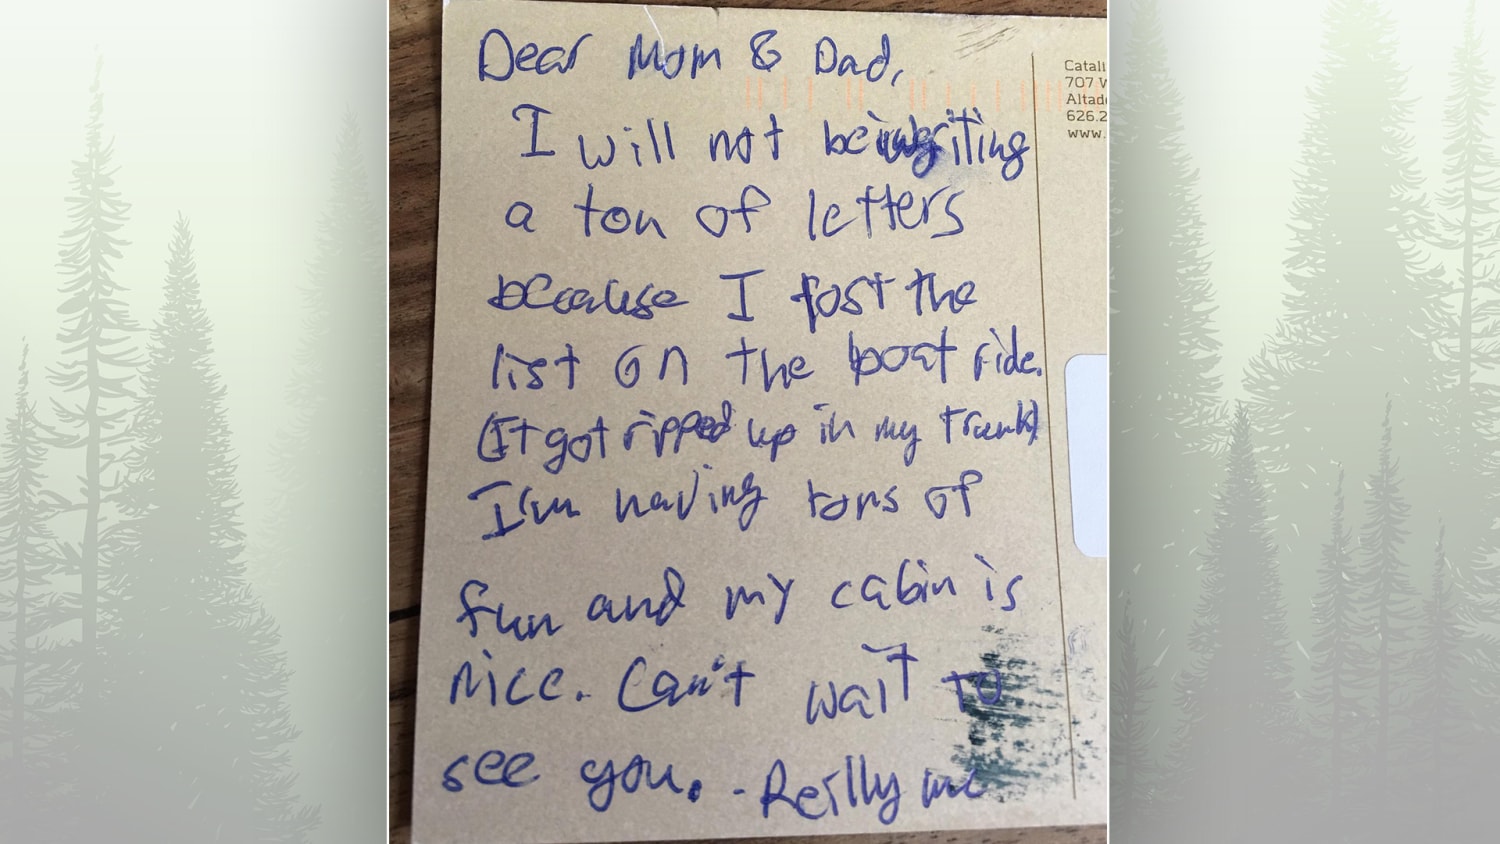 Dear Mom & Dad,
I will not be writing
a ton of letters
because I lost the
list on the boat ride.
(It got ripped up in my trunk)
I'm having tons of
fun and my cabin is
nice. Can't wait to
see you. -Reilly
Catali
707 W
Altade
626.2
www.